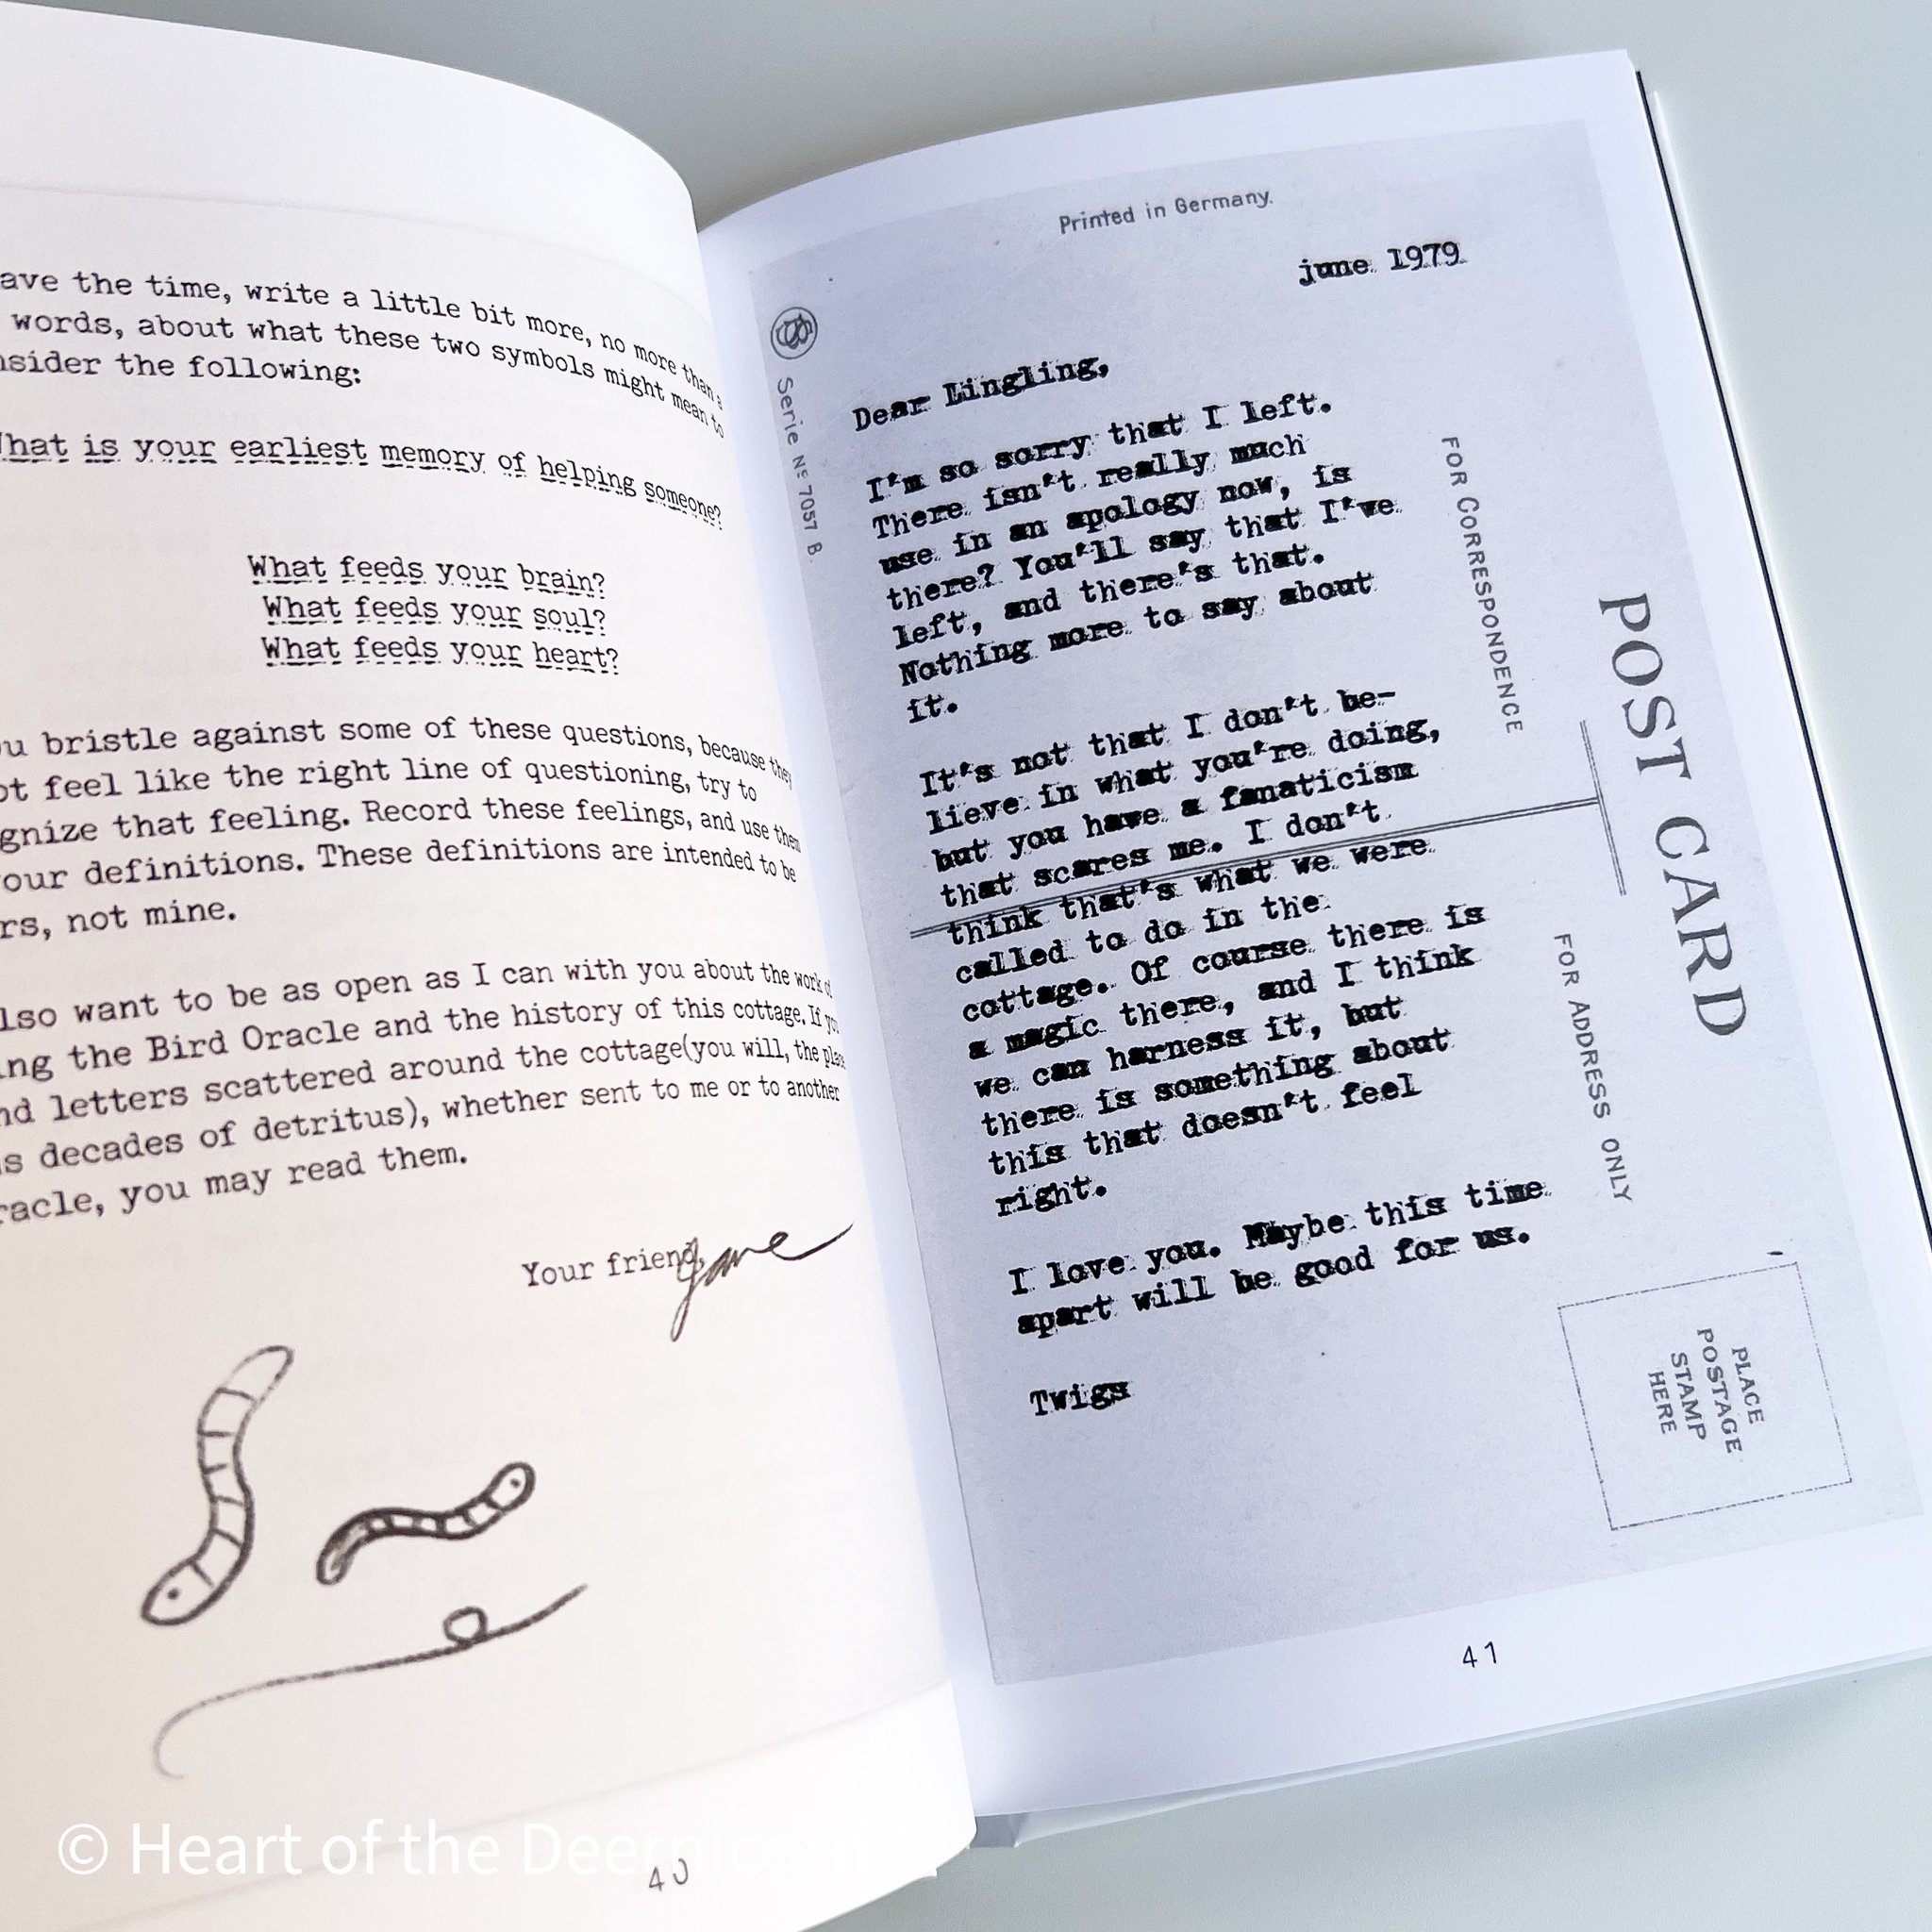 ave the time, write a little bit more, no more than a
words, about what these two symbols might mean to
nsider the following:
What is your earliest memory of helping someone?
What feeds your brain?
What feeds your soul?
What feeds your heart?
ou bristle against some of these questions, because they
ot feel like the right line of questioning, try to
gnize that feeling. Record these feelings, and use them
our definitions. These definitions are intended to be
rs, not mine.
lso want to be as open as I can with you about the work of
ing the Bird Oracle and the history of this cottage. If you
nd letters scattered around the cottage(you will, the place
s decades of detritus), whether sent to me or to another
racle, you may read them.
Your friend,
Jane
40
© Heart of the Deernicorn
Printed in Germany.
Serie No 7057 B.
june 1979
Dear Lingling,
I'm so sorry that I left.
There isn't really much
use in an apology now, is
there? You'll say that I've
left, and there's that.
Nothing more to say about
it.
It's not that I don't be-
lieve in what you're doing,
but you have a fanaticism
that scares me. I don't
think that's what we were
called to do in the
cottage. Of course there is
a magic there, and I think
we can harness it, but
there is something about
this that doesn't feel
right.
I love you. Maybe this time
apart will be good for us.
Twigs
POST CARD
FOR CORRESPONDENCE
FOR ADDRESS ONLY
PLACE
POSTAGE
STAMP
HERE
41